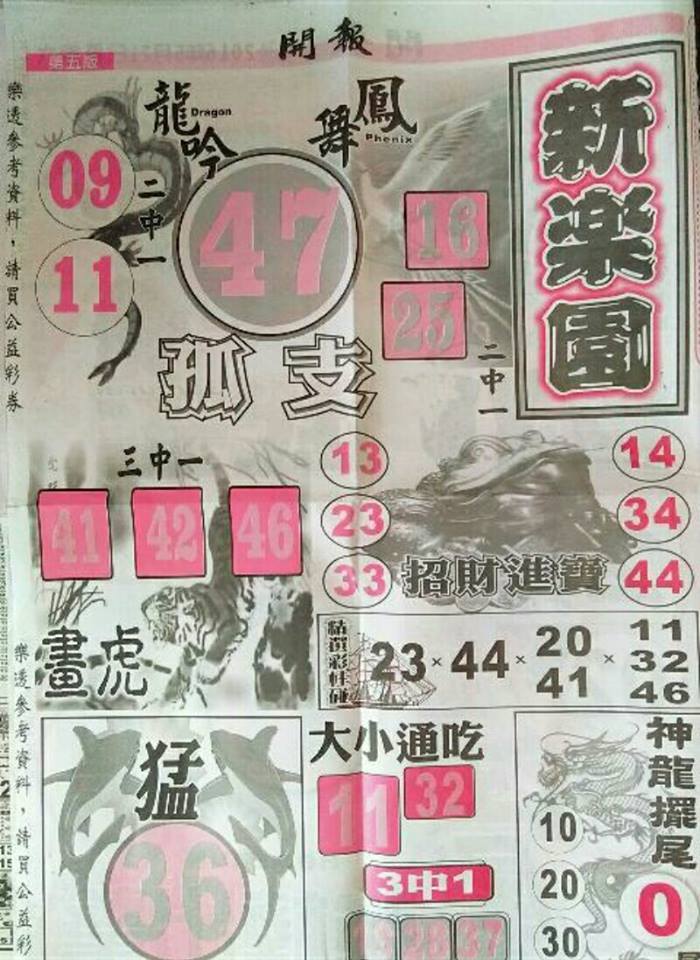 開報
第五版
樂透參考資料，請買公益彩券
龍吟
Dragon
鳳舞
Phenix
新楽園
09
11
二中一
47
孤支
16
25
二中一
三中一
41 42 46
畫虎
13
23
33
14
34
44
招財進寶
精選彩柱碰
23 × 44 × 20 41 × 11 32 46
樂透參考資料，請買公益彩
猛
36
大小通吃
11 32
3中1
28 37
神龍擺尾
10
20
30
0